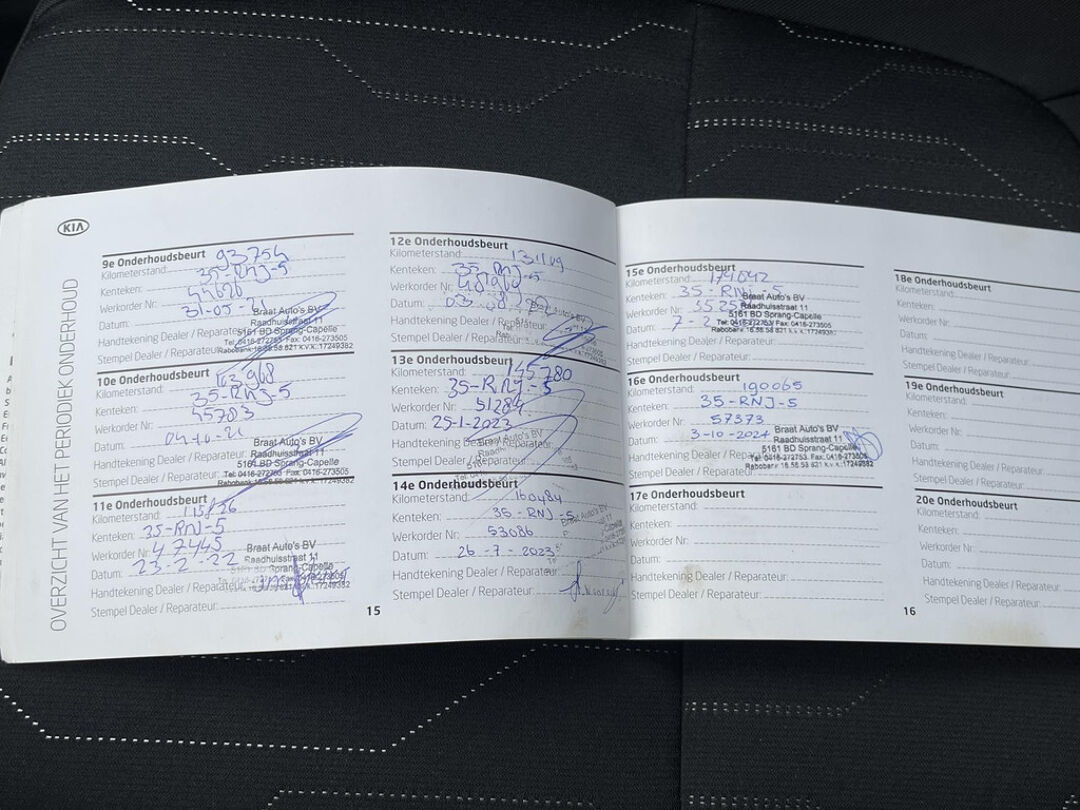 KIA
OVERZICHT VAN HET PERIODIEK ONDERHOUD
9e Onderhoudsbeurt
Kilometerstand: 93754
Kenteken: 35-RNJ-5
Werkorder Nr: 44626
Datum: 31-05-21
Handtekening Dealer / Reparateur:
Stempel Dealer / Reparateur:
Braat Auto's BV
Raadhuisstraat 11
5161 BD Sprang-Capelle
Tel: 0416-272753 Fax: 0416-273505
Rabobank 16.58.58.821 k.v.k. 17249382
10e Onderhoudsbeurt
Kilometerstand:
Kenteken: 35-RNJ-5
Werkorder Nr: 45783
Datum: 04-10-21
Handtekening Dealer / Reparateur:
Stempel Dealer / Reparateur:
Braat Auto's BV
Raadhuisstraat 11
5161 BD Sprang-Capelle
Tel: 0416-272753 Fax: 0416-273505
Rabobank 16.58.58.821 k.v.k. 17249382
11e Onderhoudsbeurt
Kilometerstand:
Kenteken: 35-RNJ-5
Werkorder Nr: 47445
Datum: 23-2-22
Handtekening Dealer / Reparateur:
Stempel Dealer / Reparateur:
Braat Auto's BV
Raadhuisstraat 11
5161 BD Sprang-Capelle
12e Onderhoudsbeurt
Kilometerstand:
Kenteken: 35-RNJ-5
Werkorder Nr:
Datum:
Handtekening Dealer / Reparateur:
Stempel Dealer / Reparateur:
13e Onderhoudsbeurt
Kilometerstand: 145780
Kenteken: 35-RNJ-5
Werkorder Nr: 51284
Datum: 25-1-2023
Handtekening Dealer / Reparateur:
Stempel Dealer / Reparateur:
14e Onderhoudsbeurt
Kilometerstand: 160484
Kenteken: 35-RNJ-5
Werkorder Nr: 53086
Datum: 26-7-2023
Handtekening Dealer / Reparateur:
Stempel Dealer / Reparateur:
15
15e Onderhoudsbeurt
Kilometerstand: 174042
Kenteken: 35-RNJ-5
Werkorder Nr:
Datum: 7-2
Handtekening Dealer / Reparateur:
Stempel Dealer / Reparateur:
Braat Auto's BV
Raadhuisstraat 11
5161 BD Sprang-Capelle
Tel: 0416-272753 Fax: 0416-273505
Rabobank 16.58.58.821 k.v.k. 17249382
16e Onderhoudsbeurt
Kilometerstand: 190065
Kenteken: 35-RNJ-5
Werkorder Nr: 57373
Datum: 3-10-2024
Handtekening Dealer / Reparateur:
Stempel Dealer / Reparateur:
Braat Auto's BV
Raadhuisstraat 11
5161 BD Sprang-Capelle
Tel: 0416-272753 Fax: 0416-273505
Rabobank 16.58.58.821 k.v.k. 17249382
17e Onderhoudsbeurt
Kilometerstand:
Kenteken:
Werkorder Nr:
Datum:
Handtekening Dealer / Reparateur:
Stempel Dealer / Reparateur:
18e Onderhoudsbeurt
Kilometerstand:
Kenteken:
Werkorder Nr:
Datum:
Handtekening Dealer / Reparateur:
Stempel Dealer / Reparateur:
19e Onderhoudsbeurt
Kilometerstand:
Kenteken:
Werkorder Nr:
Datum:
Handtekening Dealer / Reparateur:
Stempel Dealer / Reparateur:
20e Onderhoudsbeurt
Kilometerstand:
Kenteken:
Werkorder Nr:
Datum:
Handtekening Dealer / Reparateur:
Stempel Dealer / Reparateur:
16